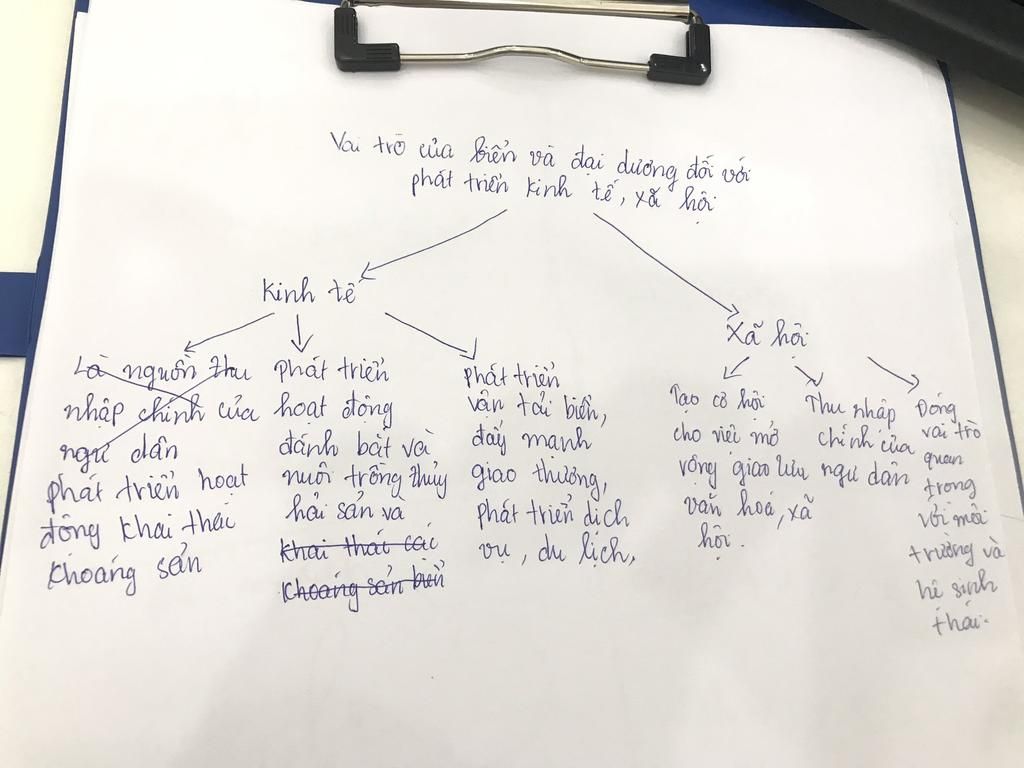 Vai trò của biển và đại dương đối với
phát triển kinh tế, xã hội
Kinh tế
Xã hội
Là nguồn thu
nhập chính của
ngư dân
phát triển hoạt
động khai thác
khoáng sản
phát triển
hoạt động
đánh bắt và
nuôi trồng thủy
hải sản và
khai thác các
khoáng sản biển
phát triển
vận tải biển,
đẩy mạnh
giao thương,
phát triển dịch
vụ, du lịch,
Tạo cơ hội
cho việc mở
rộng giao lưu
văn hoá, xã
hội.
Thu nhập
chính của
ngư dân
Đóng
vai trò
quan
trọng
với môi
trường và
hệ sinh
thái.